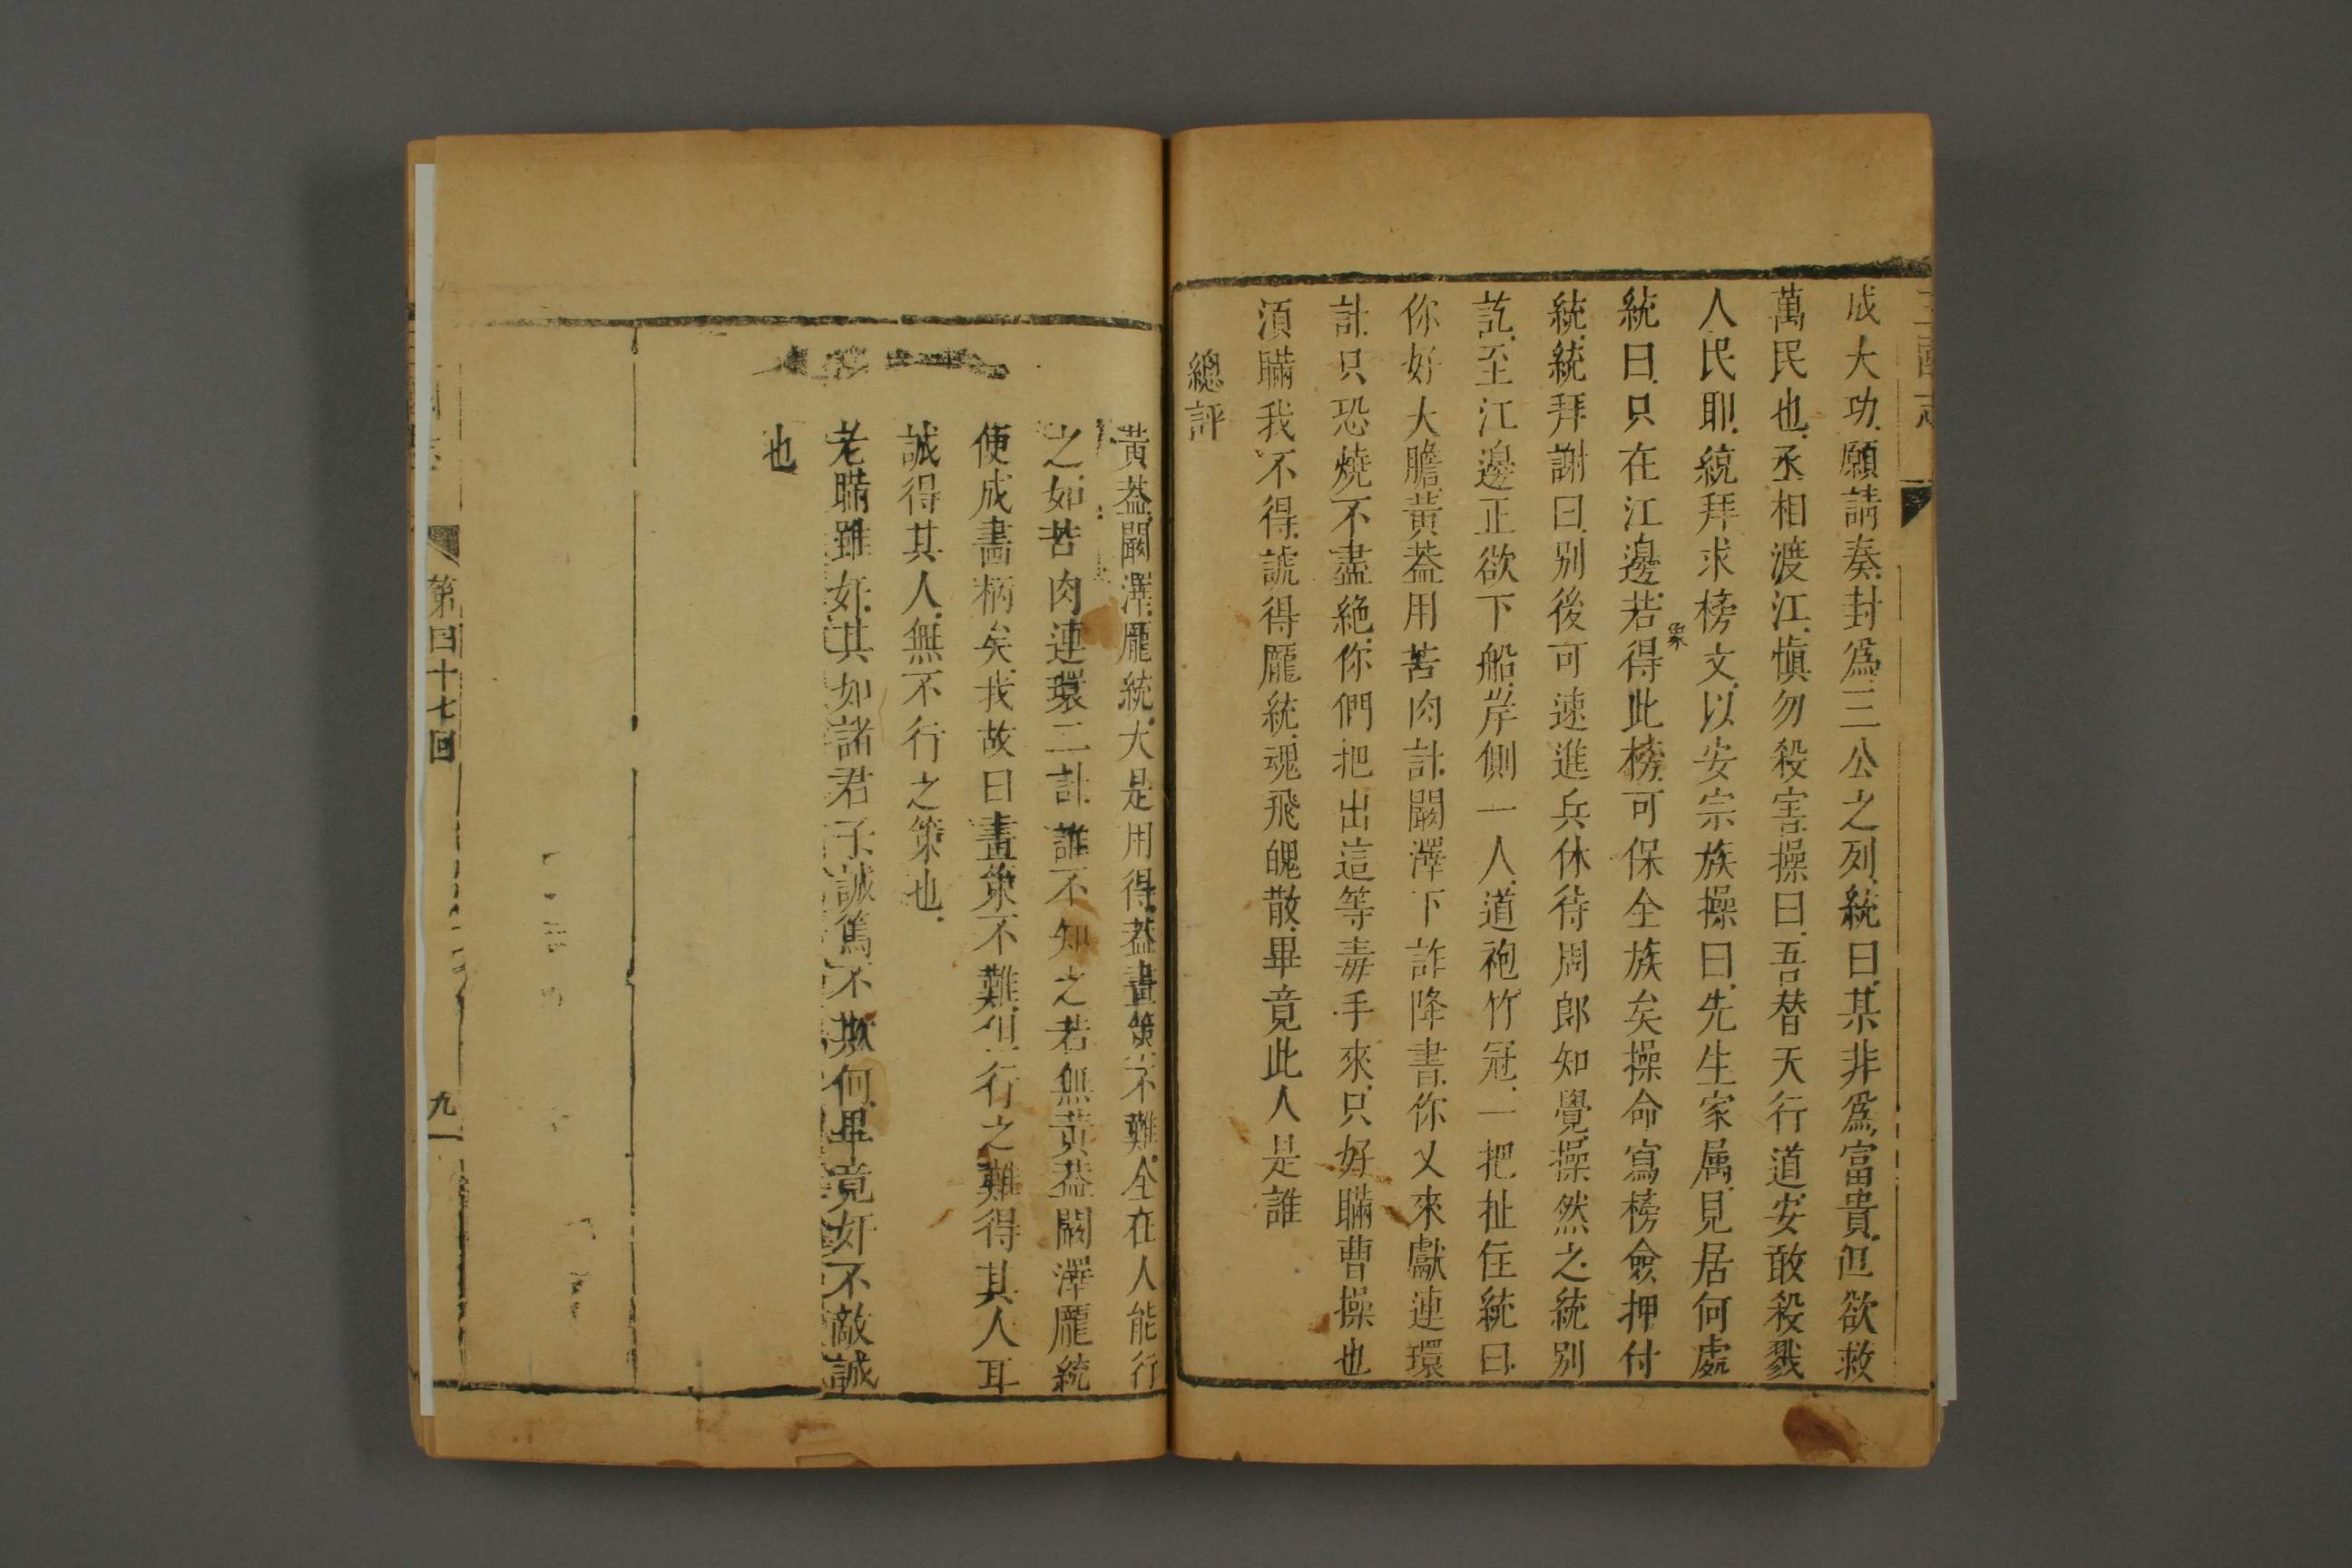 三國志
成大功願請奏封爲三公之列統曰某非爲富貴但欲救
萬民也丞相渡江愼勿殺害操曰吾替天行道安敢殺戮
人民耶統拜求榜文以安宗族操曰先生家属見居何處
統曰只在江邊若得此榜可保全族矣操命寫榜僉押付
象
統統拜謝曰别後可速進兵休待周郎知覺操然之統别
訖至江邊正欲下船岸側一人道袍竹冠一把扯住統曰
你好大膽黃葢用苦肉計闞澤下詐降書你又來獻連環
計只恐燒不盡絶你們把出這等毒手來只好瞞曹操也
湏瞞我不得諕得龎統魂飛魄散畢竟此人是誰
總評
黃葢闞澤龎統大是用得葢畫策不難全在人能行
之如苦肉連環二計誰不知之若無黃葢闞澤龎統
便成畵柄矣我故曰畫策不難但行之難得其人耳
誠得其人無不行之策也
老瞞雖奸其如諸君子誠篤不欺何畢竟奸不敵誠
也
第四十七回
九